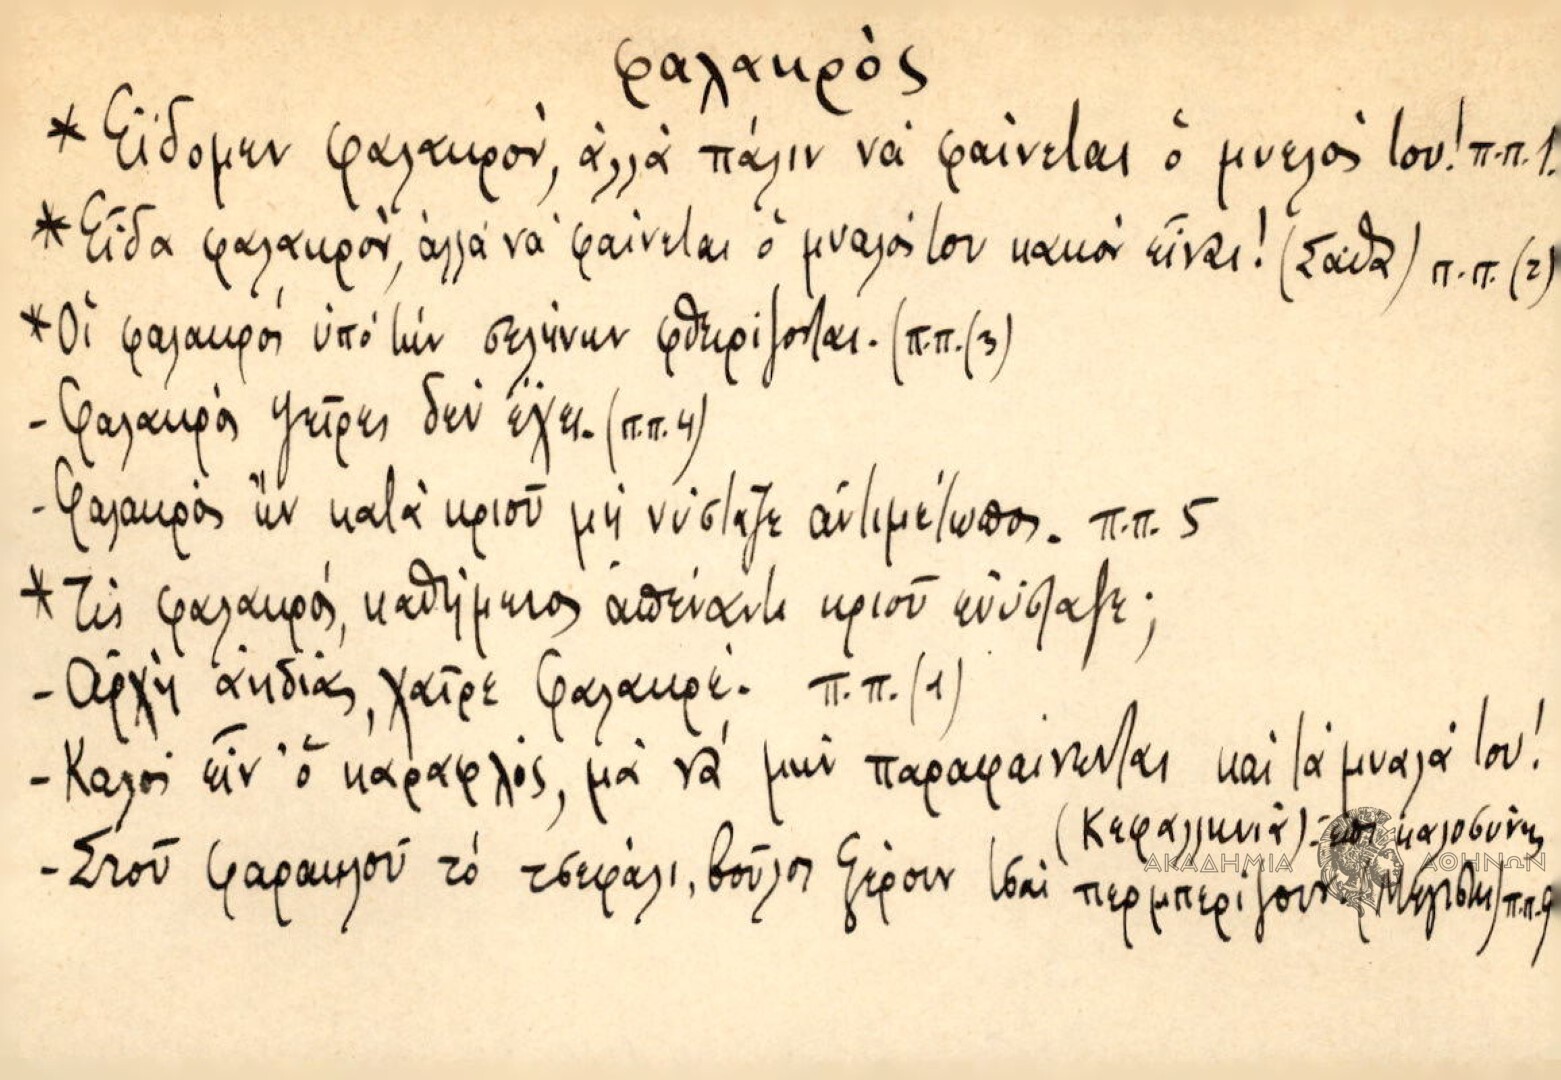 φαλακρὸς
* Εἴδομεν φαλακρὸν, ἀλλὰ πάλιν νὰ φαίνεται ὁ μυελὸς του! π.π. 1.
* Εἶδα φαλακρὸν, ἀλλὰ νὰ φαίνεται ὁ μυαλός του κακὸν εἶναι! (Σάθα) π.π. (2)
* Οἱ φαλακροὶ ὑπὸ τὴν σελήνην φθειρίζονται. (π.π. (3)
- Φαλακρὸς ψεῖρες δὲν ἔχει. (π.π. 4)
- Φαλακρὸς ὢν κατὰ κριοῦ μὴ νύσταζε ἀντιμέτωπος. π.π. 5
* Τὶς φαλακρός, καθήμενος ἀπέναντι κριοῦ ἐνύσταξε;
- Ἀρχὴ ἀηδίας, χαῖρε φαλακρέ. π.π. (1)
- Καλὸς εἶν' ὁ κάραφλὸς, μὰ νὰ μὴν παραφαίνενται καὶ τὰ μυαλὰ του!
(Κεφαλληνιὰ) - ἐπὶ καλοσύνης
- Στοῦ φαρακλοῦ τὸ τσεφάλι, βοῦλοι ξέρουν τσαὶ περμπερίζουν. (Μεγίστη) π.π. 9
ΑΚΑΔΗΜΙΑ ΑΘΗΝΩΝ